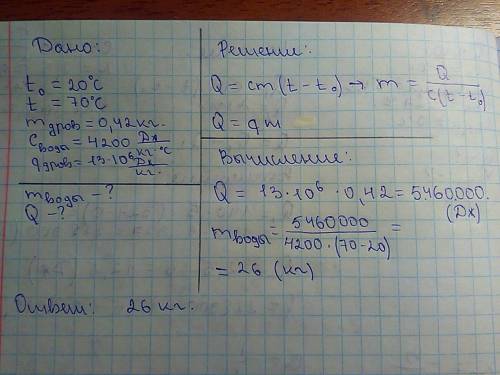 Дано:
t₀ = 20°C
t = 70°C
m дров = 0,42 кг.
c воды = 4200 Дж/кг·°C
q дров = 13·10⁶ Дж/кг.
m воды - ?
Q - ?
Решение:
Q = cm(t - t₀) → m = Q/c(t - t₀)
Q = qm
Вычисление:
Q = 13·10⁶ · 0,42 = 5460000.
(Дж)
m воды = 5460000/4200·(70-20) =
= 26 (кг)
Ответ: 26 кг.